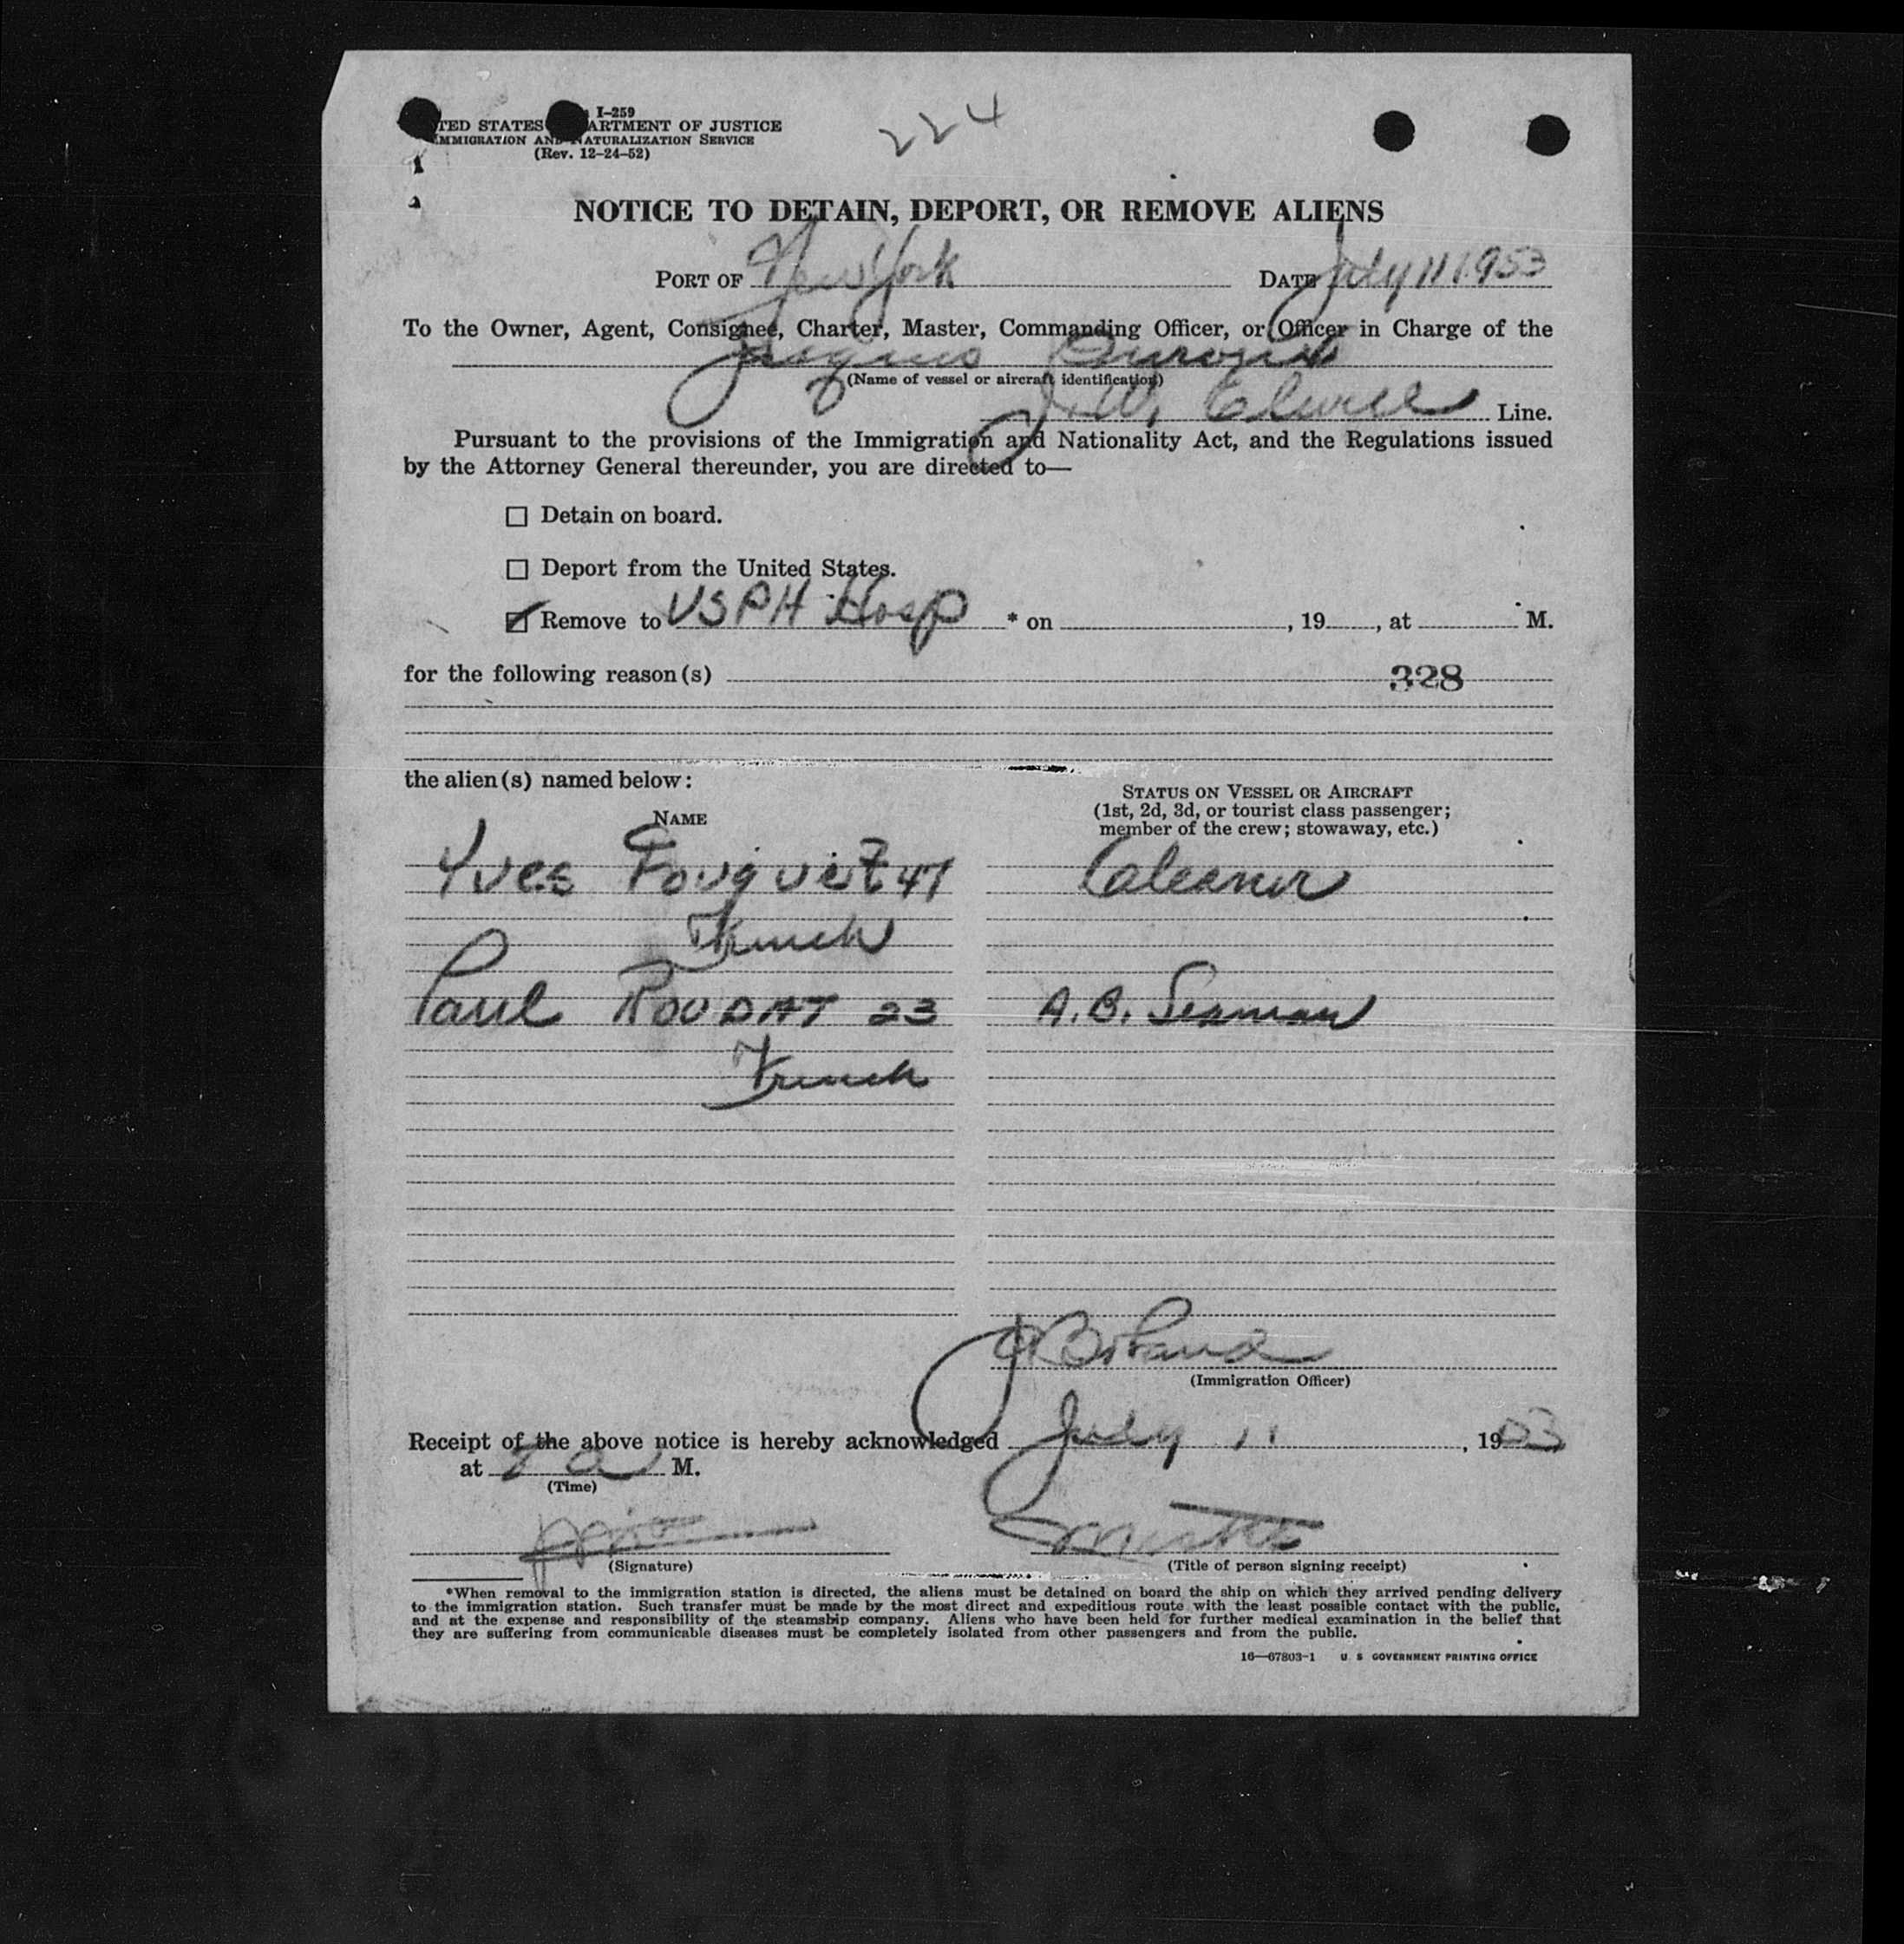 I-259
TED STATES ARTMENT OF JUSTICE
IMMIGRATION AND NATURALIZATION SERVICE
(Rev. 12-24-52)
224
NOTICE TO DETAIN, DEPORT, OR REMOVE ALIENS
PORT OF New York DATE July 11 1953
To the Owner, Agent, Consignee, Charter, Master, Commanding Officer, or Officer in Charge of the
(Name of vessel or aircraft identification)
J. W. Elwell Line.
Pursuant to the provisions of the Immigration and Nationality Act, and the Regulations issued
by the Attorney General thereunder, you are directed to—
☐ Detain on board.
☐ Deport from the United States.
☑ Remove to USPH Hosp * on , 19 , at M.
for the following reason(s) 328
the alien(s) named below:
NAME
STATUS ON VESSEL OR AIRCRAFT
(1st, 2d, 3d, or tourist class passenger;
member of the crew; stowaway, etc.)
Yves Fouquet 47 Cleaner
French
Paul ROUDAT 23 A.B. Seaman
French
J Boland
(Immigration Officer)
Receipt of the above notice is hereby acknowledged July 11 , 1953
at a M.
(Time)
(Signature) (Title of person signing receipt)
*When removal to the immigration station is directed, the aliens must be detained on board the ship on which they arrived pending delivery
to the immigration station. Such transfer must be made by the most direct and expeditious route with the least possible contact with the public,
and at the expense and responsibility of the steamship company. Aliens who have been held for further medical examination in the belief that
they are suffering from communicable diseases must be completely isolated from other passengers and from the public.
16—67803-1 U S GOVERNMENT PRINTING OFFICE